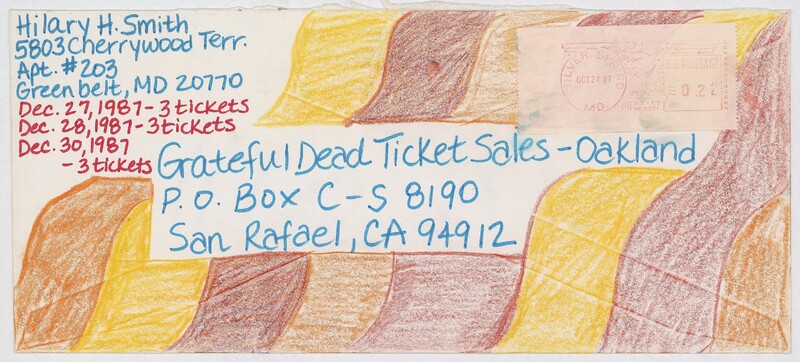 Hilary H. Smith
5803 Cherrywood Terr.
Apt. #203
Greenbelt, MD 20770
Dec. 27, 1987 - 3 tickets
Dec. 28, 1987 - 3 tickets
Dec. 30, 1987
- 3 tickets
Grateful Dead Ticket Sales - Oakland
P.O. Box C-S 8190
San Rafael, CA 94912
SILVER SPRING
OCT 24 '87
MD.
U.S. POSTAGE
0.22